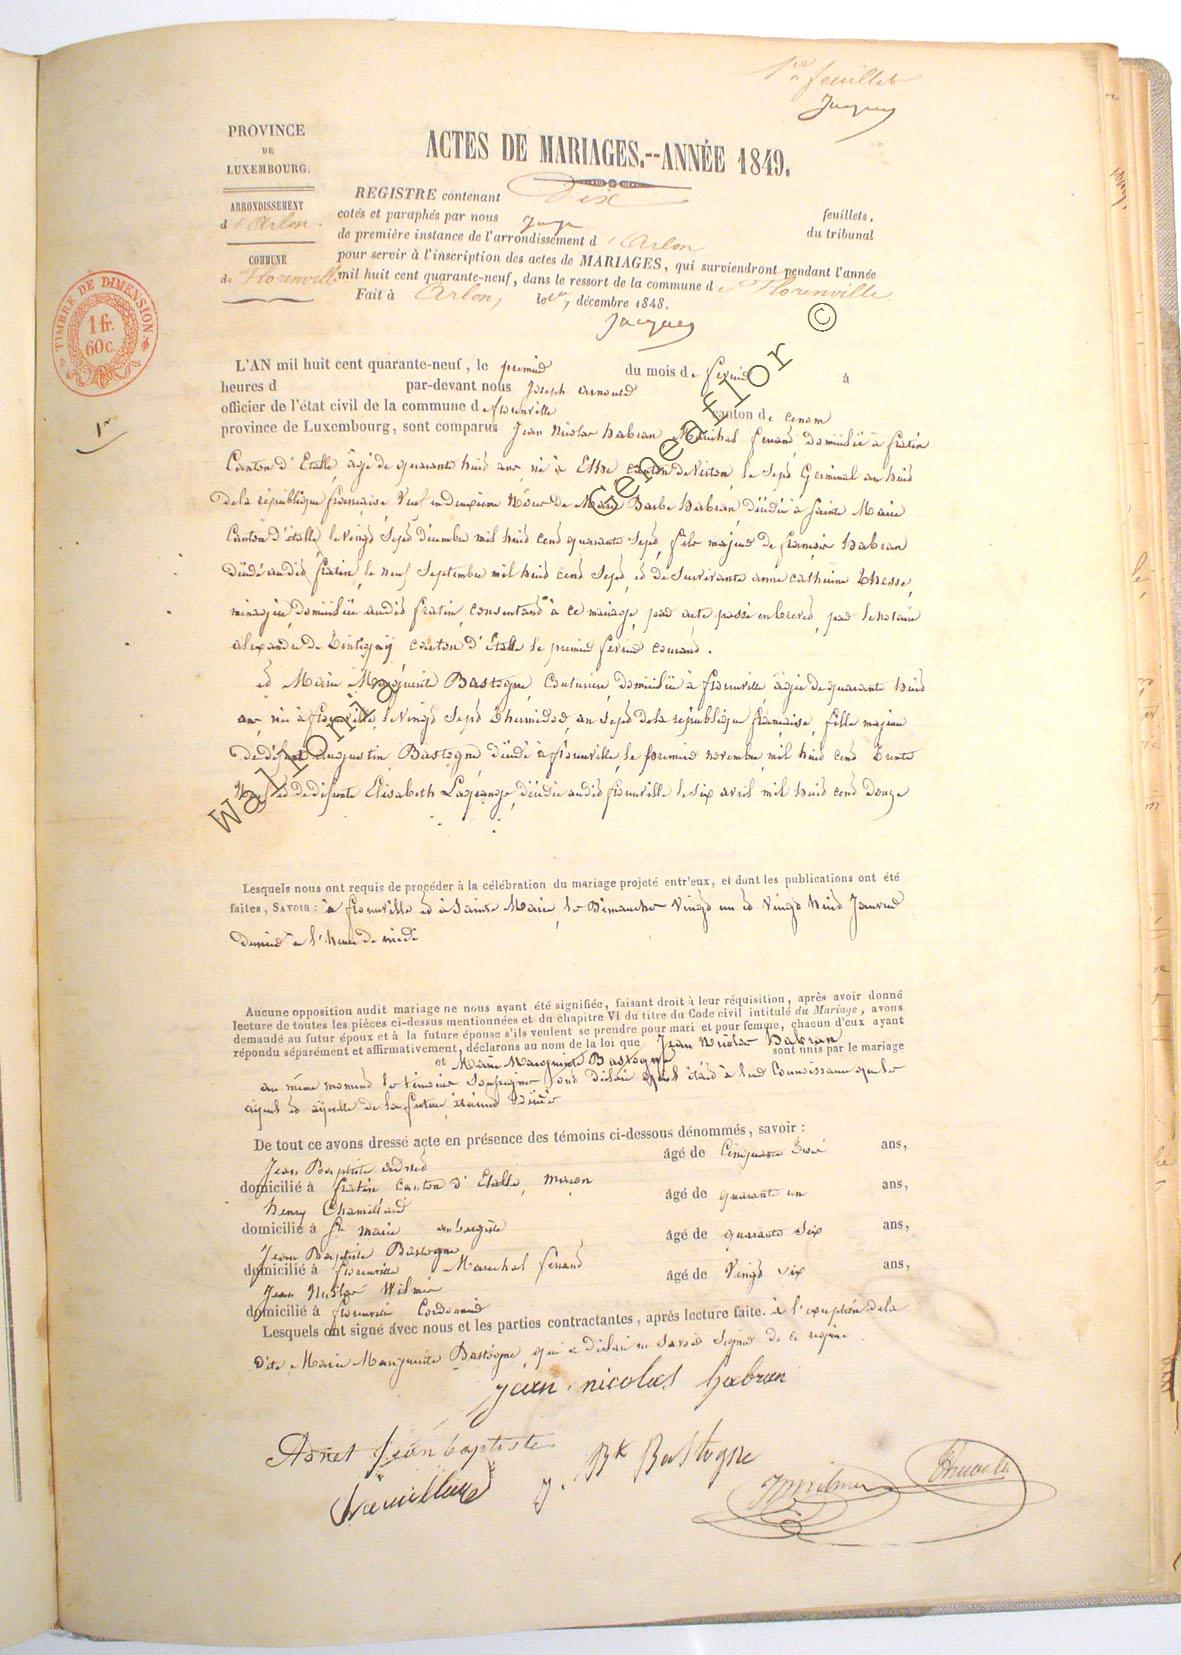 1er feuillet
Jacques
PROVINCE
DE
LUXEMBOURG.
ARRONDISSEMENT
d'Arlon.
COMMUNE
de Florenville
ACTES DE MARIAGES.--ANNÉE 1849.
REGISTRE contenant Dix feuillets,
cotés et paraphés par nous Juge du tribunal
de première instance de l'arrondissement d'Arlon
pour servir à l'inscription des actes de MARIAGES, qui surviendront pendant l'année
mil huit cent quarante-neuf, dans le ressort de la commune de Florenville
Fait à Arlon, le décembre 1848.
Jacques
TIMBRE DE DIMENSION
1 fr.
60 c.
1er
L'AN mil huit cent quarante-neuf, le premier du mois de fevrier à
heures d par-devant nous Joseph Arnould
officier de l'état civil de la commune de florenville canton de
province de Luxembourg, sont comparus Jean Nicolas habran Maréchal ferrand, domicilié à fratin
Canton d'Etalle, âgé de quarante huit ans, né à Ethe canton de Virton, le sept Germinal an huit
de la république française Veuf en deuxième Nôce de Marie Barbe habran, décédée à Sainte Marie
Canton d'étalle, le vingt sept décembre mil huit cent quarante sept, fils majeur de françois habran
décédé audit fratin, le neuf Septembre mil huit cent sept, et de Survivante anne catherine thesse,
ménagère, domiciliée audit fratin, consentant à ce mariage, par acte passé en brevet, par le notaire
alexandre de tintigny canton d'Étalle le premier fevrier courant.
et Marie Marguerite Bastogne, Couturière, domiciliée à florenville âgée de quarante huit
ans, née à florenville, le vingt sept thermidor, an sept de la république française, fille majeure
de défunt augustin Bastogne, décédé à florenville, le premier novembre, mil huit cent trente
Neuf et de défunte Elisabeth Lagrange, décédée audit florenville le six avril mil huit cent douze
Lesquels nous ont requis de procéder à la célébration du mariage projeté entr'eux, et dont les publications ont été
faites, SAVOIR : à florenville et à Sainte Marie, les Dimanches vingt un et vingt huit Janvier
dernier à l'heure de midi
Aucune opposition audit mariage ne nous ayant été signifiée, faisant droit à leur réquisition, après avoir donné
lecture de toutes les pièces ci-dessus mentionnées et du chapitre VI du titre du Code civil intitulé du Mariage, avons
demandé au futur époux et à la future épouse s'ils veulent se prendre pour mari et pour femme, chacun d'eux ayant
répondu séparément et affirmativement, déclarons au nom de la loi que Jean Nicolas habran
et Marie Marguerite Bastogne sont unis par le mariage
au même moment les témoins Soussignés ont déclaré qu'il était à leur Connaissance que les
ayeul et ayeulle de la future étaient
De tout ce avons dressé acte en présence des témoins ci-dessous dénommés, savoir :
Jean Baptiste âgé de Cinquante ans,
domicilié à fratin Canton d'Etalle, maçon
henry Chamillard âgé de quarante un ans,
domicilié à Ste marie aubergiste
Jean Baptiste Bastogne âgé de quarante six ans,
domicilié à florenville Marechal ferrand
Jean Nicolas Wilmin âgé de vingt six ans,
domicilié à florenville Cordonnier
Lesquels ont signé avec nous et les parties contractantes, après lecture faite. à l'exception de la
dite Marie Marguerite Bastogne, qui a déclaré ne savoir signer de ce requise.
jean nicolas habran
Asnet Jean baptiste
J. Bte Bastogne
Chamillard
wallonia Geneaflor ©